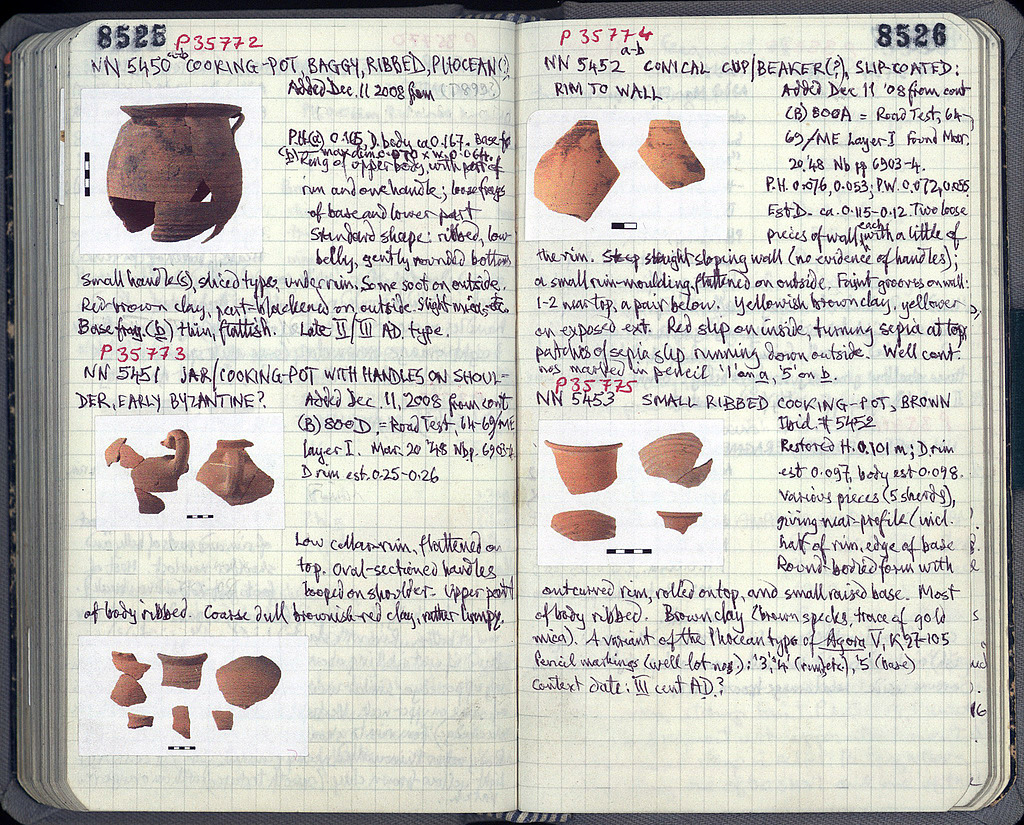 8525
P 35772
a-b
NN 5450 COOKING-POT, BAGGY, RIBBED, PHOCEAN(?)
Added Dec. 11 2008 from
P.H.(a) 0.165, D. body ca 0.167. Base fr
(b) max dim. 0.070 x w. 0.064.
Ring of upper body, with part of
rim and one handle; loose frags
of base and lower part
Standard shape: ribbed, low
belly, gently rounded bottom
Small handle(s), sliced type, under rim. Some soot on outside.
Red-brown clay, part-blackened on outside. Slight mica, etc.
Base frag (b) thin, flattish. Late II/III AD. type.
P 35773
NN 5451 JAR/COOKING-POT WITH HANDLES ON SHOUL-
DER, EARLY BYZANTINE?
Added Dec. 11, 2008 from cont
(B) 800D, = Road Test, 64-69/ME
Layer-I. Mar. 20 '48 Nbp. 6903-4
D rim est. 0.25-0.26
Low collar-rim, flattened on
top. Oval-sectioned handles
looped on shoulder. Upper part
of body ribbed. Coarse dull brownish-red clay, rather lumpy.
8526
P 35774
a-b
NN 5452 CONICAL CUP/BEAKER(?), SLIP-COATED:
RIM TO WALL
Added Dec 11 '08 from cont
(B) 800A = Road Test, 64-
69/ME Layer-I Found Mar.
20.'48 Nb pp 6903-4.
P.H. 0.076, 0.053; P.W. 0.072, 0.055
Est D. ca. 0.115-0.12. Two loose
pieces of wall, each with a little of
the rim. Steep straight sloping wall (no evidence of handles);
a small rim-moulding, flattened on outside. Faint grooves on wall:
1-2 near top, a pair below. Yellowish brown clay, yellower
on exposed ext. Red slip on inside, turning sepia at top,
patches of sepia slip running down outside. Well cont.
nos marked in pencil '1' on a, '5' on b.
P 35775
NN 5453 SMALL RIBBED COOKING-POT, BROWN
Ibid. # 5452
Restored H. 0.101 m; D rim
est 0.097, body est 0.098.
Various pieces (5 sherds),
giving near-profile (incl.
half of rim, edge of base
Round-bodied form with
outcurved rim, rolled on top, and small raised base. Most
of body ribbed. Brown clay (brown specks, trace of gold
mica). A variant of the Phocean type of Agora V, K 97-105
Pencil markings (well-lot nos): '3', '4' (rim, etc), '5' (base)
Context date: III cent AD.?